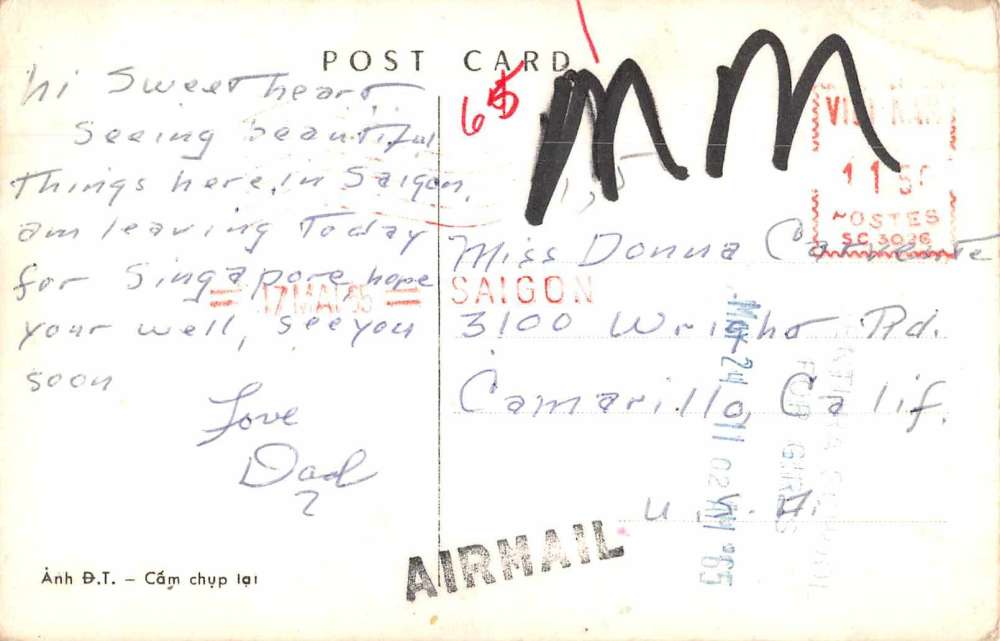 POST CARD
hi Sweetheart
Seeing beautiful
Things here, in Saigon,
am leaving Today
for Singapore, hope
your well, see you
soon
Love
Dad
6
M M
VIET-NAM
11
POSTES
SC 3036
= 17 MAI 65 =
SAIGON
Miss Donna
3100 Wright Rd.
Camarillo, Calif.
U.S.A.
May 24 11 02 AM '65
FOR GIRLS
AIRMAIL
Ảnh Đ.T. – Cấm chụp lại